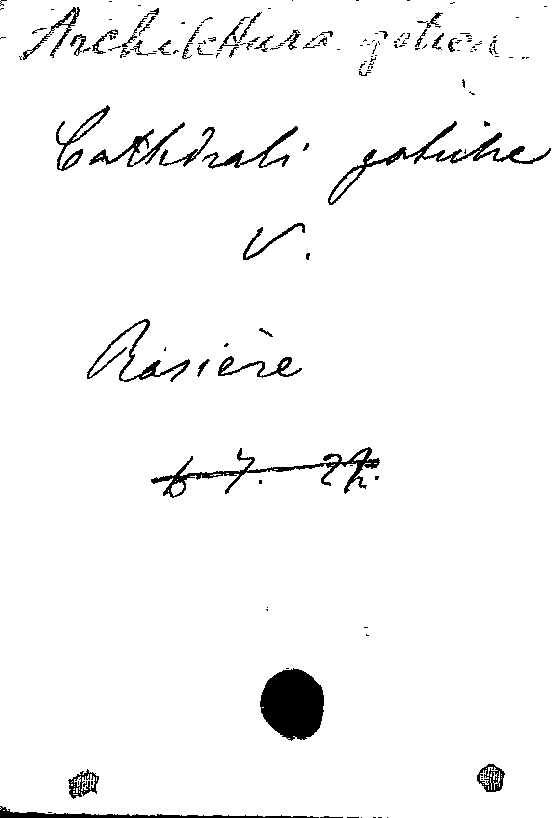 Architettura gotica
Cathedrali gotiche
V.
Rasière
b 7.